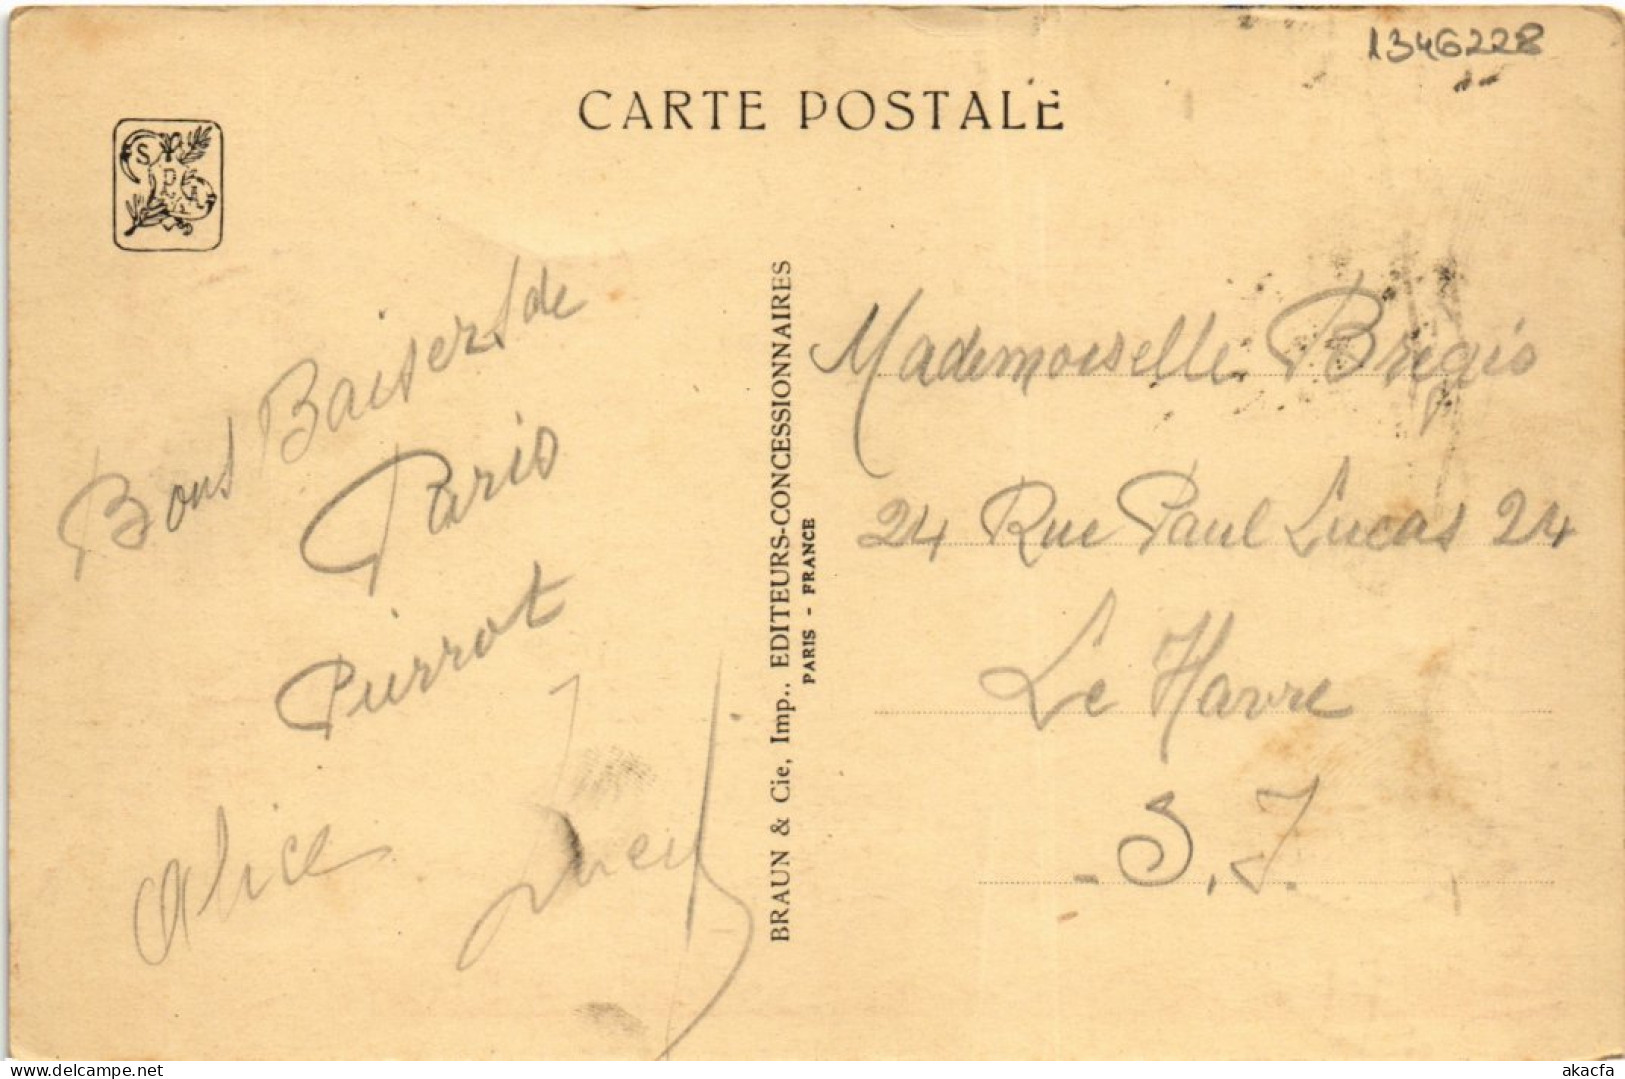 1346228
CARTE POSTALE
S
P
A
Bons Baisers de
Paris
Pierrot
Alice
BRAUN & Cie, Imp., EDITEURS-CONCESSIONNAIRES
PARIS - FRANCE
Mademoiselle
24 Rue Paul Lucas 24
Le Havre
- S. I.
delcampe.net
akacfa